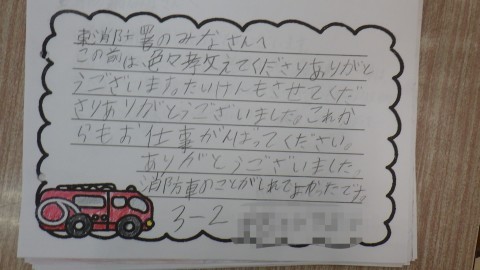 東消防署のみなさんへ
この前は、色々教えてくださりありがと
うございます。たいけんもさせてくだ
さりありがとうございました。これか
らもお仕事がんばってください。
ありがとうございました。
消防車のことがしれてよかったです。
3-2